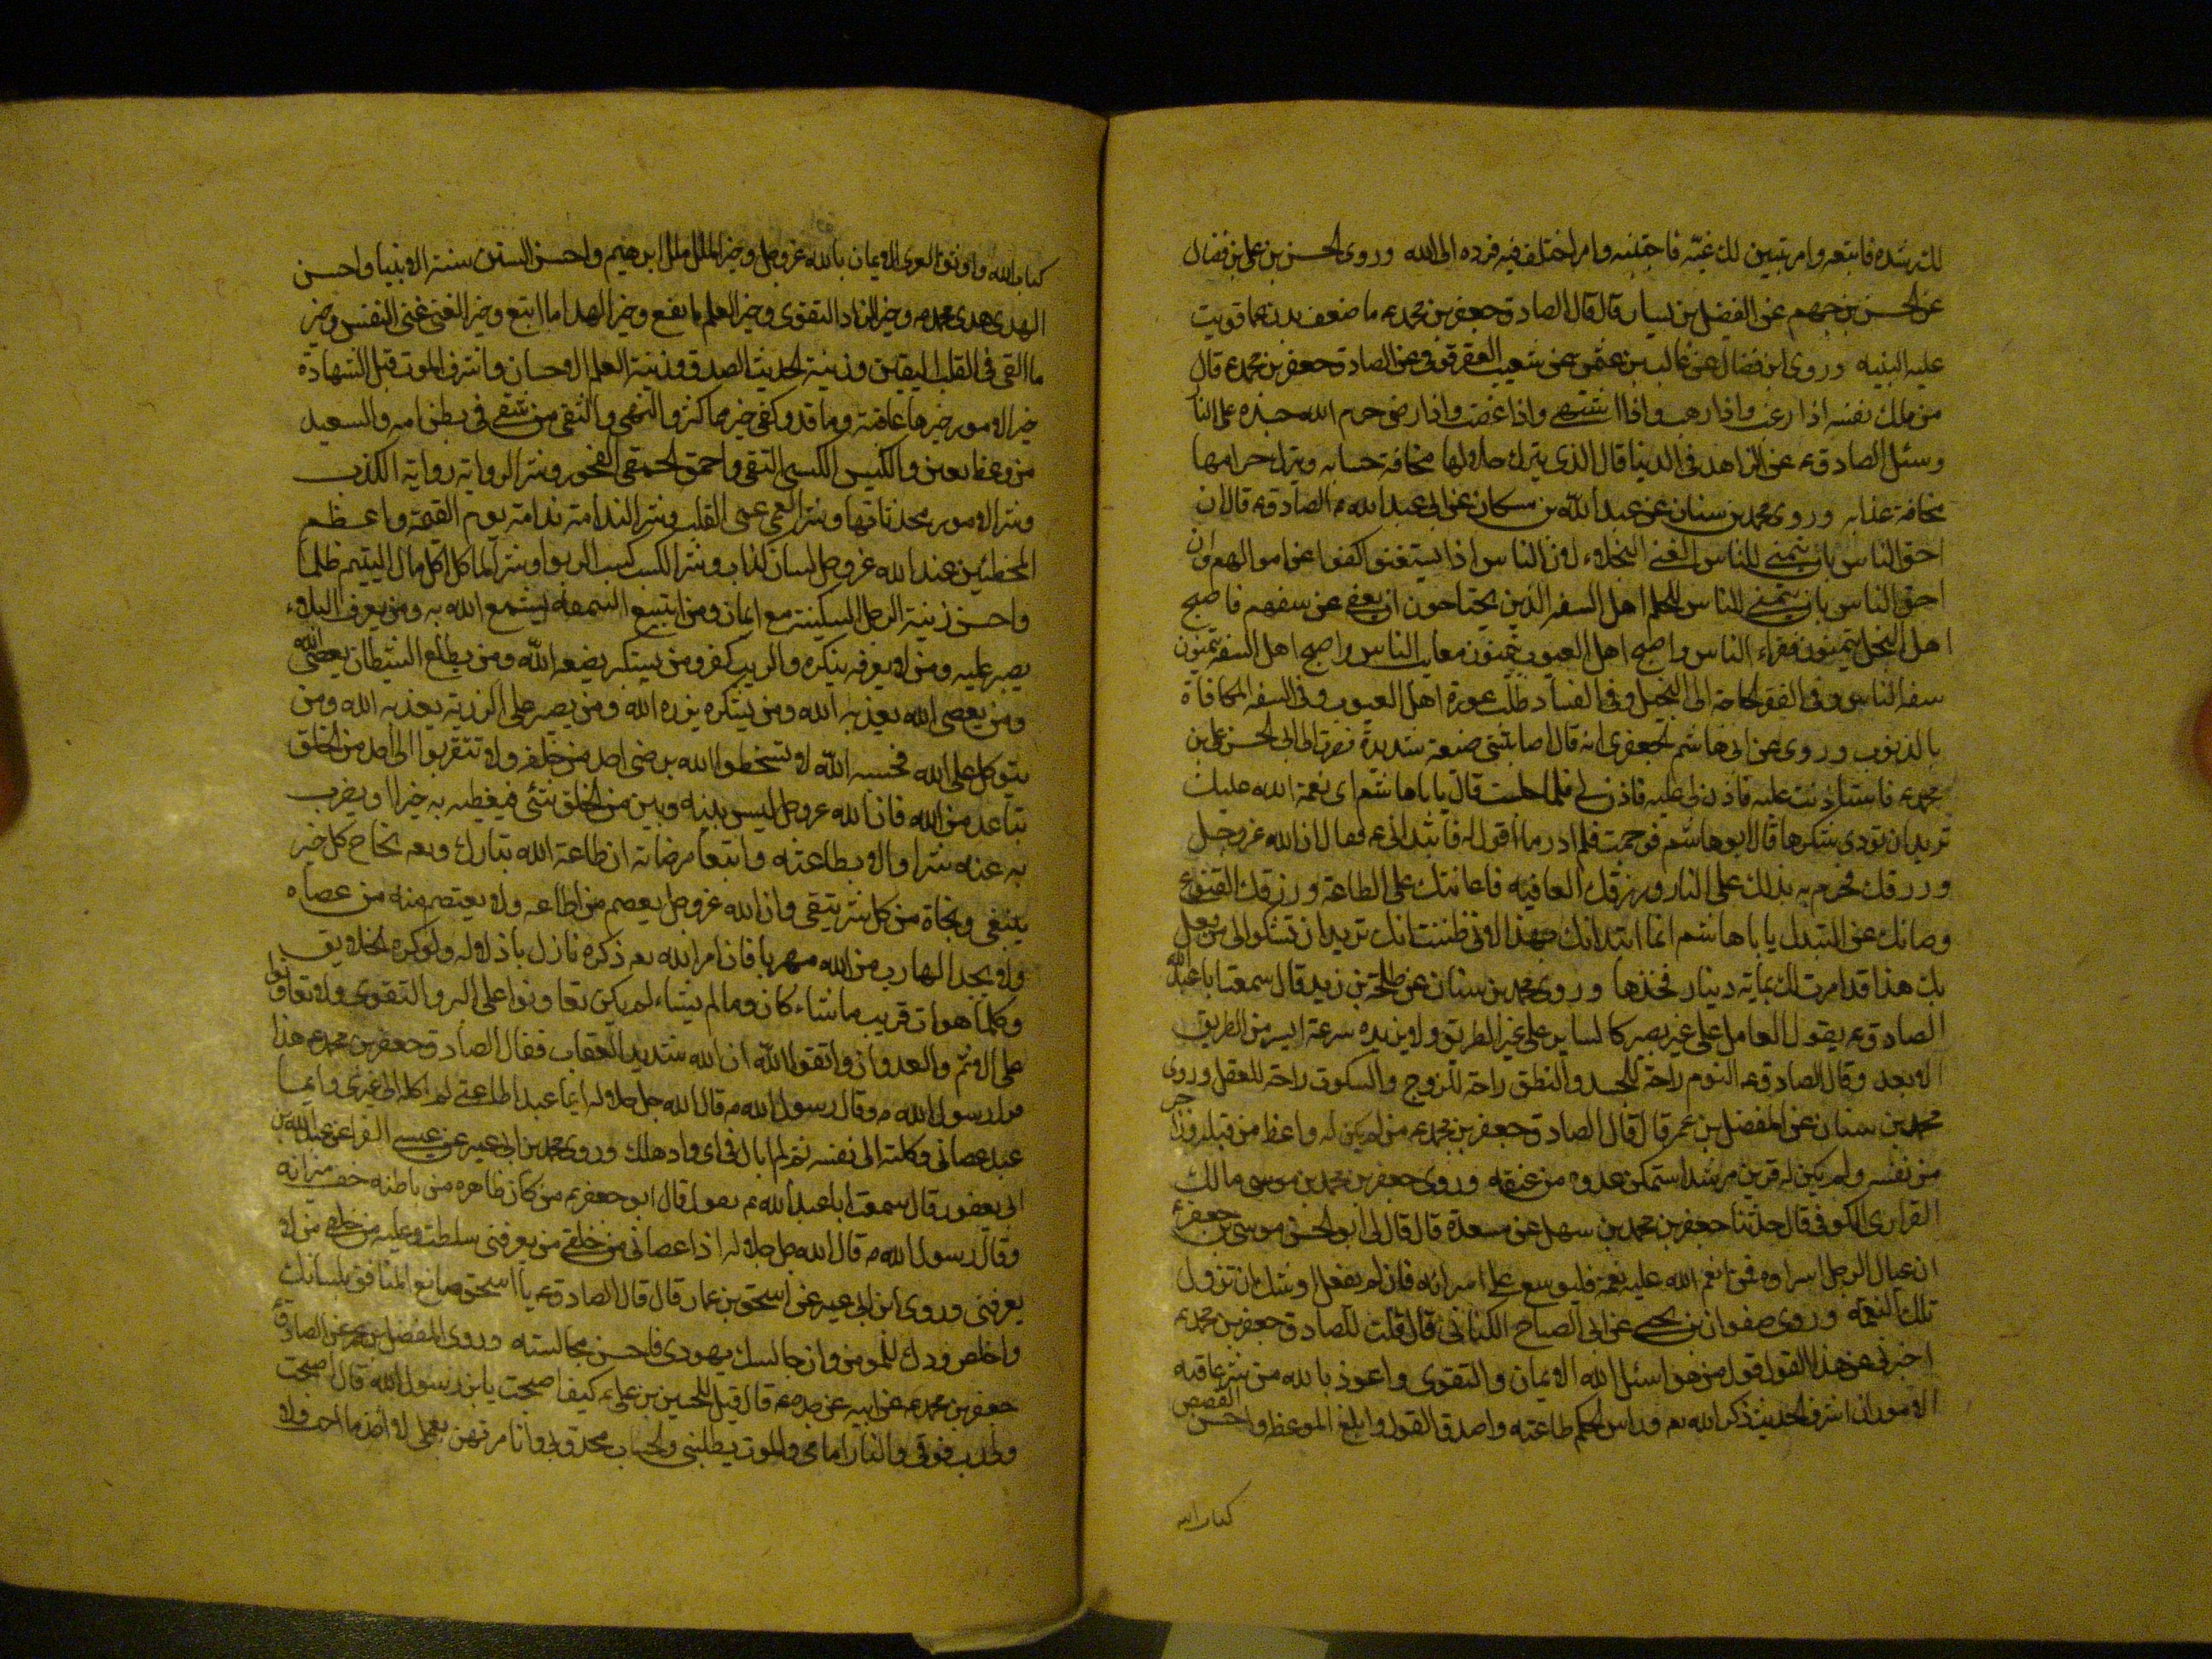 لك رشده فاتبعه وامر تبين لك غيّه فاجتنبه وامر اختلف فيه فرده الى الله وروى الحسن بن على بن فضال
عن الحسن بن جهم عن الفضيل بن يسار قال قال الصادق جعفر بن محمد ع ما ضعف بدن عما قويت
عليه النيه وروى ابن فضال عن غالب بن عثمن عن شعيب العقرقوفى عن الصادق جعفر بن محمد ع قال
من ملك نفسه اذا رغب واذا رهب واذا اشتهى واذا غضب واذا رضى حرم الله جسده على النا
وسئل الصادق ع عن الزاهد فى الدنيا قال الذى يترك حلالها مخافة حسابه ويترك حرامها
مخافة عذابه وروى محمد بن سنان عن عبد الله بن مسكان عن ابى عبد الله ع الصادق ع قال ان
احق الناس بان يتمنى للناس الغنى البخلاء لان الناس اذا استغنوا كفوا عن اموالهم وان
احق الناس بان يتمنى للناس الحلم اهل السفه الذين يحتاجون ان يعفى عن سفههم فاصبح
اهل البخل يتمنون فقراء الناس واصبح اهل العيوب يتمنون معايب الناس واصبح اهل السفه يتمنون
سفه الناس وفى الفقر الحاجة الى البخيل وفى الفساد طلب عورة اهل العيوب وفى السفه المكافاة
بالذنوب وروى عن ابى هاشم الجعفرى انه قال اصابتنى ضيقة شديدة فصرت الى ابى الحسن على بن
محمد ع فاستاذنت عليه فاذن لى فلما جلست قال يا باهاشم اى نعمة الله عليك
تريد ان تودى شكرها قال ابو هاشم فوجمت فلم ادر ما اقول له فابتدانى ع فقال ان الله عز وجل
ورزقك فحرم به بدنك على النار ورزقك العافيه فاعانتك على الطاعة ورزقك القنوع
وصانك عن التبذل يا باهاشم انما ابتداتك بهذا لانى ظننت انك تريد ان تشكو الى من فعل
بك هذا قد امرت لك بماية دينار فخذها وروى محمد بن سنان عن طلحة بن زيد قال سمعت ابا عبد الله
الصادق ع يقول العامل على غير بصير كالساير على غير الطريق ولا يزيده سرعة السير من الطريق
الا بعد وقال الصادق ع النوم راحة للجسد والنطق راحة للروح والسكوت راحة للعقل وروى
محمد بن سنان عن المفضل بن عمر قال قال الصادق جعفر بن محمد ع من لم يكن له واعظ من قلبه وزاجر
من نفسه ولم يكن له قرين مرشد استمكن عدوه من عنقه وروى جعفر بن محمد بن موسى مالك
الفزارى الكوفى قال حدثنا جعفر بن محمد بن سهل عن مسعدة قال قال لى ابو الحسن موسى بن جعفر ع
ان عيال الرجل اسراوه فمن انعم الله عليه نعمه فليوسع على اسرائه فان لم يفعل اوشك ان تزول
تلك النعمة وروى صفوان بن يحيى عن ابى الصباح الكنانى قال قلت للصادق جعفر بن محمد ع
اخبرنى عن هذا القول قول من هو اسئل الله الايمان والتقوى واعوذ بالله من شر عاقبه
الامور ان اشرف الحديث ذكر الله تع وراس الحكم طاعته واصدق القول وابلغ الموعظه واحسن القصص
كتاب الله
كتاب الله واوثق العرى الايمان بالله عز وجل وخير الملل ملل ابرهيم واحسن السنن سنة الانبيا واحسن
الهدى هدى محمد ص وخير الزاد التقوى وخير العلم ما نفع وخير الهدا ما اتبع وخير الغنى غنى النفس وخير
ما القى فى القلب اليقين وزينة الحديث الصدق وزينة العلم الاحسان واشرف الموت قتل الشهادة
خير الامور خيرها عاقبة وما قل وكفى خير مما كثر والهى والشقى من شقى فى بطن امه والسعيد
من وعظ بغيره والكيس الكيس التقى واحمق الحمقى الفجور وشر الرواية رواية الكذب
وشر الامور محدثاتها وشر العمى عمى القلب وشر الندامة ندامة يوم القيمة واعظم
المخطئين عند الله عز وجل لسان كذاب وشر الكسب كسب الربوا وشر الماكل اكل مال اليتيم ظلما
واحسن زينة الرجل السكينة مع ايمان ومن ابتغ السمعة يسمع الله به ومن يعرف البلاء
يصبر عليه ومن لا يعرفه ينكره والريب كفر ومن يستكبر يضعه الله ومن يطع الشيطان يعصى الله
ومن يعصى الله يعذبه الله ومن يشكره يزده الله ومن يصبر على الرزية يغذيه الله ومن
يتوكل على الله فحسبه الله لا تسخطوا الله برضى احد من خلقه ولا تتقربوا الى احد من الخلق
بتباعد من الله فان الله عز وجل ليس بينه وبين من الخلق شئ فيعطيه به خيرا او يصرف
به عنه شرا والا بطاعته وابتغا مرضاته ان طاعة الله تبارك وتع نجاح كل خير
يبتغى ونجاة من كل شر يتقى وان الله عز وجل يعصم من اطاعه ولا يعتصم منه من عصاه
ولا يجد الهارب من الله مهربا فان امر الله تع ذكره نازل باذلاله ولو كره الخلايق
وكلما هو ات قريب ما شاء كان وما لم يشاء لم يكن تعاونوا على البر والتقوى ولا تعاونوا
على الاثم والعدوان واتقوا الله ان الله شديد العقاب فقال الصادق جعفر بن محمد ع هذا
قول رسول الله ص وقال رسول الله ص قال الله جل جلاله ايما عبد اطاعنى لم اكله الى غيرى وايما
عبد عصانى وكلته الى نفسه ثم لم ابال فى اى واد هلك وروى محمد بن ابى عمير عن عيسى الفرا عن عبد الله بن
ابى يعفور قال سمعت ابا عبد الله ع يقول قال ابو جعفر ع من كان ظاهره من باطنه خف ميزانه
وقال رسول الله ص قال الله جل جلاله اذا عصانى من خلقى من يعرفنى سلطت عليه من خلقى من لا
يعرفنى وروى ابن ابى عمير عن اسحق بن عمار قال قال الصادق ع يا اسحق صانع المنافق بلسانك
واخلص ودك للمومن وان جالسك يهودى فاحسن مجالسته وروى المفضل بن عمر عن الصادق
جعفر بن محمد ع عن ابيه عن جده ع قال قيل للحسين بن على ع كيف اصبحت يا بن رسول الله قال اصبحت
ولى رب فوقى والنار امامى والموت يطلبنى والحساب محدق بى وانا مرتهن بعملى لا اجد ما احب ولا